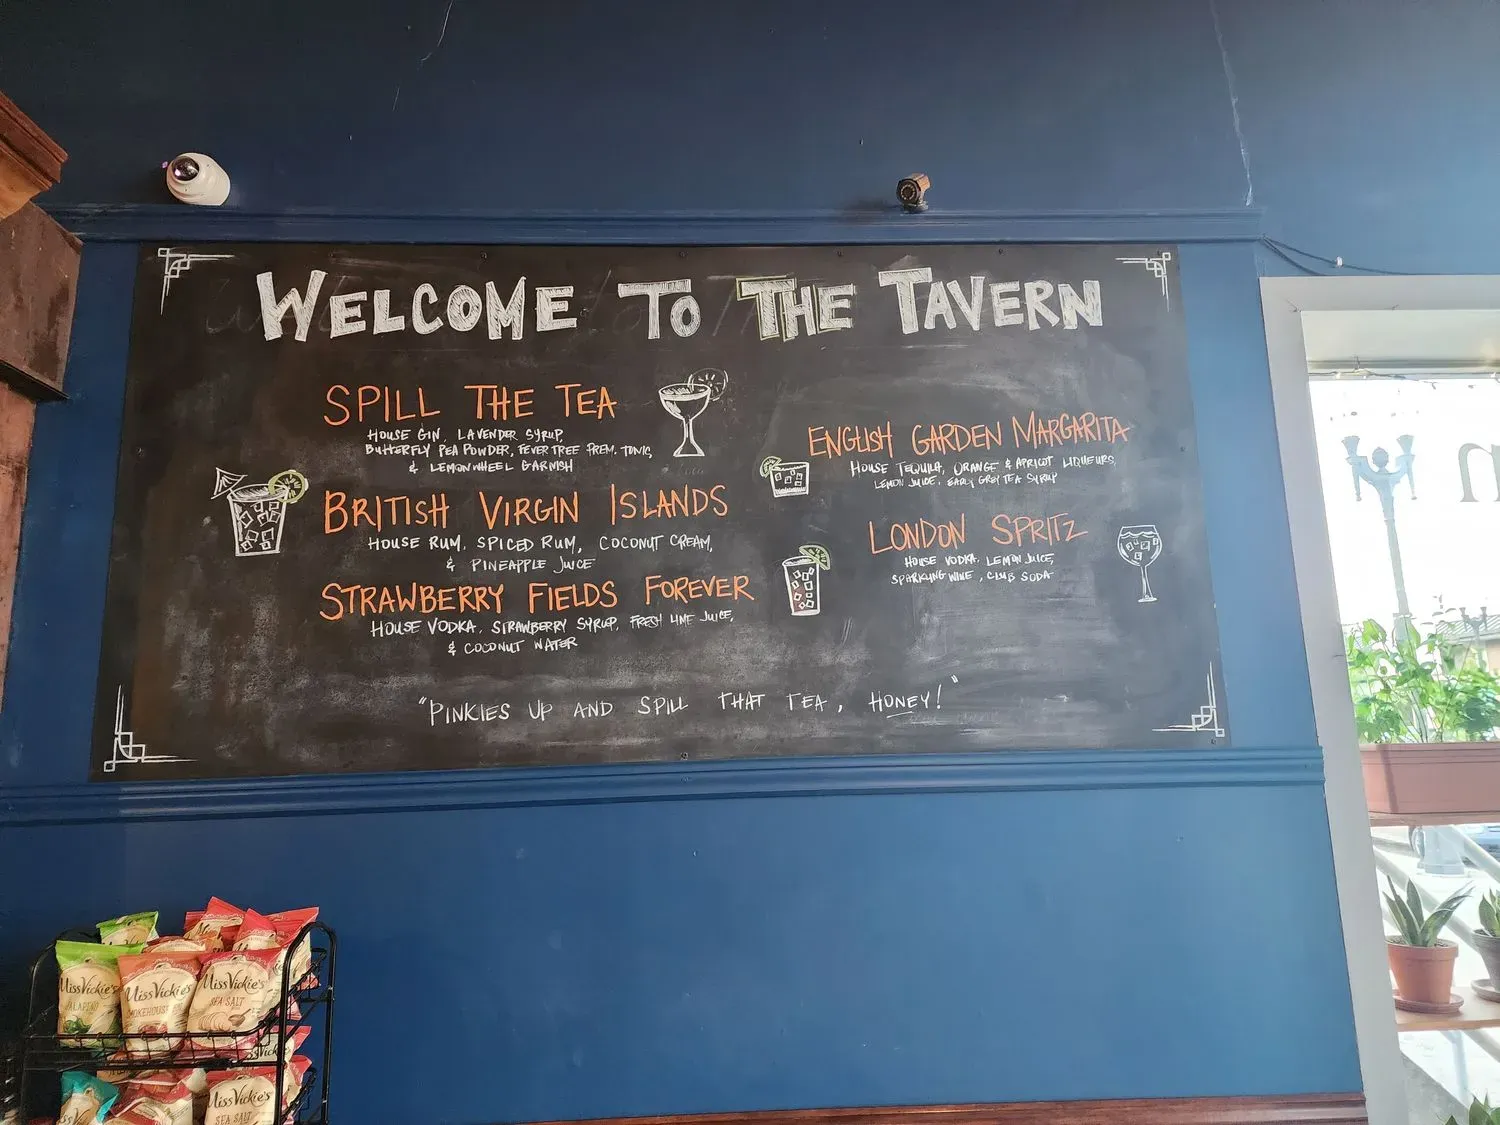 WELCOME TO THE TAVERN
SPILL THE TEA
HOUSE GIN, LAVENDER SYRUP,
BUTTERFLY PEA POWDER, FEVER TREE PREM. TONIC,
& LEMON WHEEL GARNISH
BRITISH VIRGIN ISLANDS
HOUSE RUM, SPICED RUM, COCONUT CREAM,
& PINEAPPLE JUICE
STRAWBERRY FIELDS FOREVER
HOUSE VODKA, STRAWBERRY SYRUP, FRESH LIME JUICE,
& COCONUT WATER
ENGLISH GARDEN MARGARITA
HOUSE TEQUILA, ORANGE & APRICOT LIQUEURS,
LEMON JUICE, EARLY GREY TEA SYRUP
LONDON SPRITZ
HOUSE VODKA, LEMON JUICE,
SPARKLING WINE, CLUB SODA
"PINKIES UP AND SPILL THAT TEA, HONEY!"
Miss Vickie's
JALAPEÑO
Miss Vickie's
SMOKEHOUSE
Miss Vickie's
SEA SALT
Miss Vickie's
SEA SALT